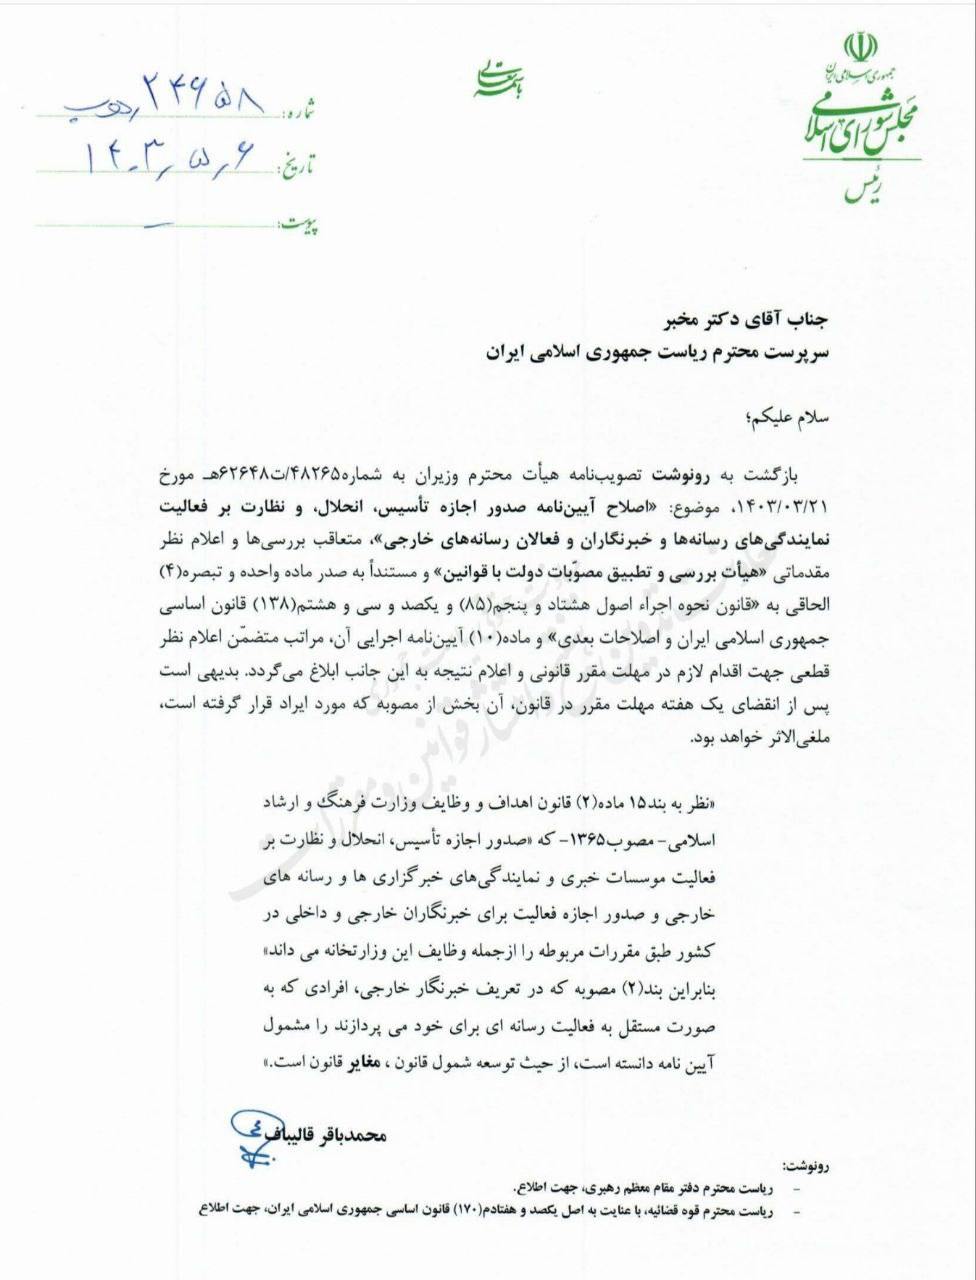 جمهوری اسلامی ایران
مجلس شورای اسلامی
رئیس
باسمه تعالی
شماره:
تاریخ: ۱۴۰۳٫۵٫۶
پیوست: –
جناب آقای دکتر مخبر
سرپرست محترم ریاست جمهوری اسلامی ایران
سلام علیکم؛
بازگشت به رونوشت تصویب‌نامه هیأت محترم وزیران به شماره۴۸۲۶۵/ت۶۲۶۴۸هـ مورخ
۱۴۰۳/۰۳/۲۱، موضوع: «اصلاح آیین‌نامه صدور اجازه تأسیس، انحلال، و نظارت بر فعالیت
نمایندگی‌های رسانه‌ها و خبرنگاران و فعالان رسانه‌های خارجی»، متعاقب بررسی‌ها و اعلام نظر
مقدماتی «هیأت بررسی و تطبیق مصوّبات دولت با قوانین» و مستنداً به صدر ماده واحده و تبصره(۴)
الحاقی به «قانون نحوه اجراء اصول هشتاد و پنجم(۸۵) و یکصد و سی و هشتم(۱۳۸) قانون اساسی
جمهوری اسلامی ایران و اصلاحات بعدی» و ماده(۱۰) آیین‌نامه اجرایی آن، مراتب متضمّن اعلام نظر
قطعی جهت اقدام لازم در مهلت مقرر قانونی و اعلام نتیجه به این جانب ابلاغ می‌گردد. بدیهی است
پس از انقضای یک هفته مهلت مقرر در قانون، آن بخش از مصوبه که مورد ایراد قرار گرفته است،
ملغی‌الاثر خواهد بود.
«نظر به بند۱۵ ماده(۲) قانون اهداف و وظایف وزارت فرهنگ و ارشاد
اسلامی- مصوب۱۳۶۵- که «صدور اجازه تأسیس، انحلال و نظارت بر
فعالیت موسسات خبری و نمایندگی‌های خبرگزاری ها و رسانه های
خارجی و صدور اجازه فعالیت برای خبرنگاران خارجی و داخلی در
کشور طبق مقررات مربوطه را ازجمله وظایف این وزارتخانه می داند»
بنابراین بند(۲) مصوبه که در تعریف خبرنگار خارجی، افرادی که به
صورت مستقل به فعالیت رسانه ای برای خود می پردازند را مشمول
آیین نامه دانسته است، از حیث توسعه شمول قانون ، مغایر قانون است.»
محمدباقر قالیباف
رونوشت:
- ریاست محترم دفتر مقام معظم رهبری، جهت اطلاع.
- ریاست محترم قوه قضائیه، با عنایت به اصل یکصد و هفتادم(۱۷۰) قانون اساسی جمهوری اسلامی ایران، جهت اطلاع